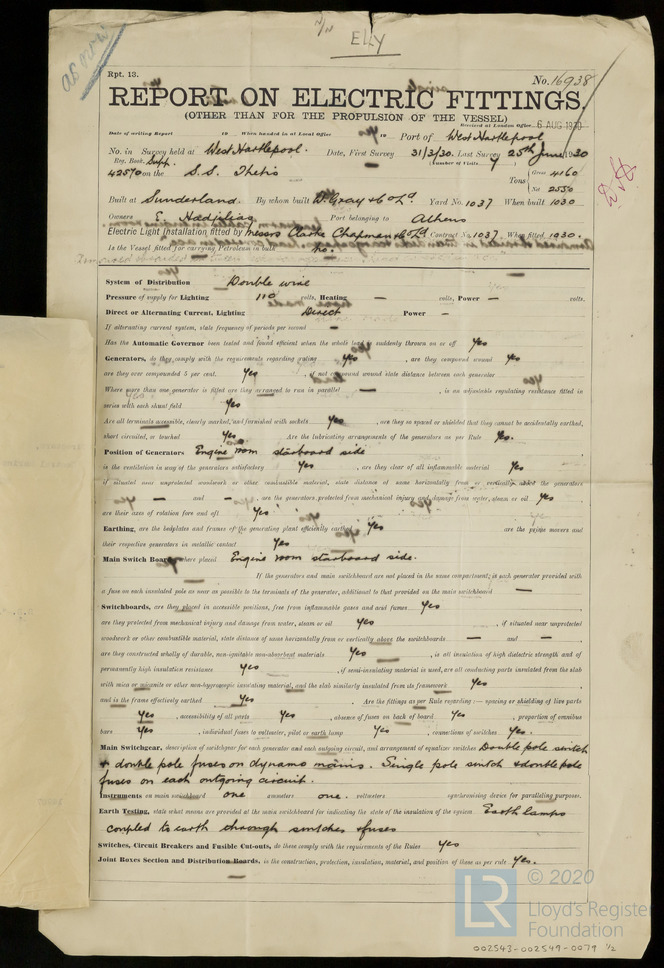 ELLY
as over
Rpt. 13.
No. 16938
REPORT ON ELECTRIC FITTINGS,
(OTHER THAN FOR THE PROPULSION OF THE VESSEL)
Received at London Office 6 AUG 1930
Date of writing Report 19 When handed in at Local Office 19 Port of West Hartlepool
No. in Survey held at West Hartlepool. Date, First Survey 31/3/30. Last Survey 25th June 1930
Reg. Book. Supp. (Number of Visits
42570 on the S.S. Thetis Tons { Gross 4160
Net 2550
Built at Sunderland. By whom built W. Gray & Co Ld Yard No. 1037 When built 1930
Owners E. Hadjilias Port belonging to Athens
Electric Light Installation fitted by Messrs Clarke Chapman & Co Ld Contract No. 1037 When fitted 1930.
Is the Vessel fitted for carrying Petroleum in bulk no.
System of Distribution Double wire
Pressure of supply for Lighting 110 volts, Heating — volts, Power — volts.
Direct or Alternating Current, Lighting Direct Power —
If alternating current system, state frequency of periods per second —
Has the Automatic Governor been tested and found efficient when the whole load is suddenly thrown on or off Yes
Generators, do they comply with the requirements regarding rating Yes , are they compound wound Yes
are they over compounded 5 per cent. Yes , if not compound wound state distance between each generator
Where more than one generator is fitted are they arranged to run in parallel — , is an adjustable regulating resistance fitted in
series with each shunt field Yes
Are all terminals accessible, clearly marked, and furnished with sockets Yes , are they so spaced or shielded that they cannot be accidentally earthed,
short circuited, or touched Yes . Are the lubricating arrangements of the generators as per Rule Yes.
Position of Generators Engine room starboard side
is the ventilation in way of the generators satisfactory Yes , are they clear of all inflammable material Yes
if situated near unprotected woodwork or other combustible material, state distance of same horizontally from or vertically above the generators
— and — are the generators protected from mechanical injury and damage from water, steam or oil Yes
are their axes of rotation fore and aft Yes
Earthing, are the bedplates and frames of the generating plant efficiently earthed Yes are the prime movers and
their respective generators in metallic contact Yes
Main Switch Boards, where placed Engine room starboard side.
If the generators and main switchboard are not placed in the same compartment, is each generator provided with
a fuse on each insulated pole as near as possible to the terminals of the generator, additional to that provided on the main switchboard —
Switchboards, are they placed in accessible positions, free from inflammable gases and acid fumes Yes
are they protected from mechanical injury and damage from water, steam or oil Yes , if situated near unprotected
woodwork or other combustible material, state distance of same horizontally from or vertically above the switchboards — and —
are they constructed wholly of durable, non-ignitable non-absorbent materials Yes , is all insulation of high dielectric strength and of
permanently high insulation resistance Yes , if semi-insulating material is used, are all conducting parts insulated from the slab
with mica or micanite or other non-hygroscopic insulating material, and the slab similarly insulated from its framework Yes
and is the frame effectively earthed Yes . Are the fittings as per Rule regarding:— spacing or shielding of live parts
Yes , accessibility of all parts Yes , absence of fuses on back of board Yes , proportion of omnibus
bars Yes , individual fuses to voltmeter, pilot or earth lamp Yes , connections of switches Yes.
Main Switchgear, description of switchgear for each generator and each outgoing circuit, and arrangement of equaliser switches Double pole switch
& double pole fuses on dynamo mains. Single pole switch & double pole
fuses on each outgoing circuit.
Instruments on main switchboard one ammeters one. voltmeters synchronising device for paralleling purposes.
Earth Testing, state what means are provided at the main switchboard for indicating the state of the insulation of the system Earth lamps
coupled to earth through switches & fuses
Switches, Circuit Breakers and Fusible Cut-outs, do these comply with the requirements of the Rules Yes
Joint Boxes Section and Distribution Boards, is the construction, protection, insulation, material, and position of these as per rule Yes.
LR
© 2020
Lloyd's Register
Foundation
002543-002549-0079 1/2